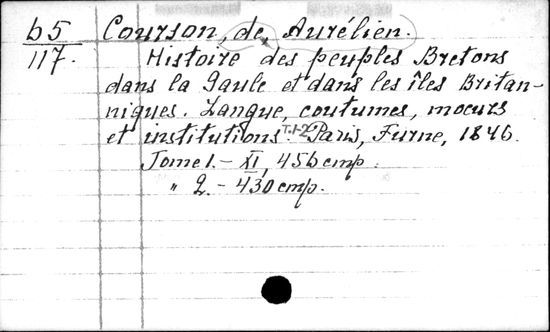 б5 Courson, de, Aurélien.
117. Histoire des peuples Bretons
dans la Gaule et dans les îles Britan-
niques. Langue, coutumes, moeurs
et institutions. T.1-2 Paris, Furne, 1846.
Tome 1. – XI, 456 cmp.
" 2. – 430 cmp.